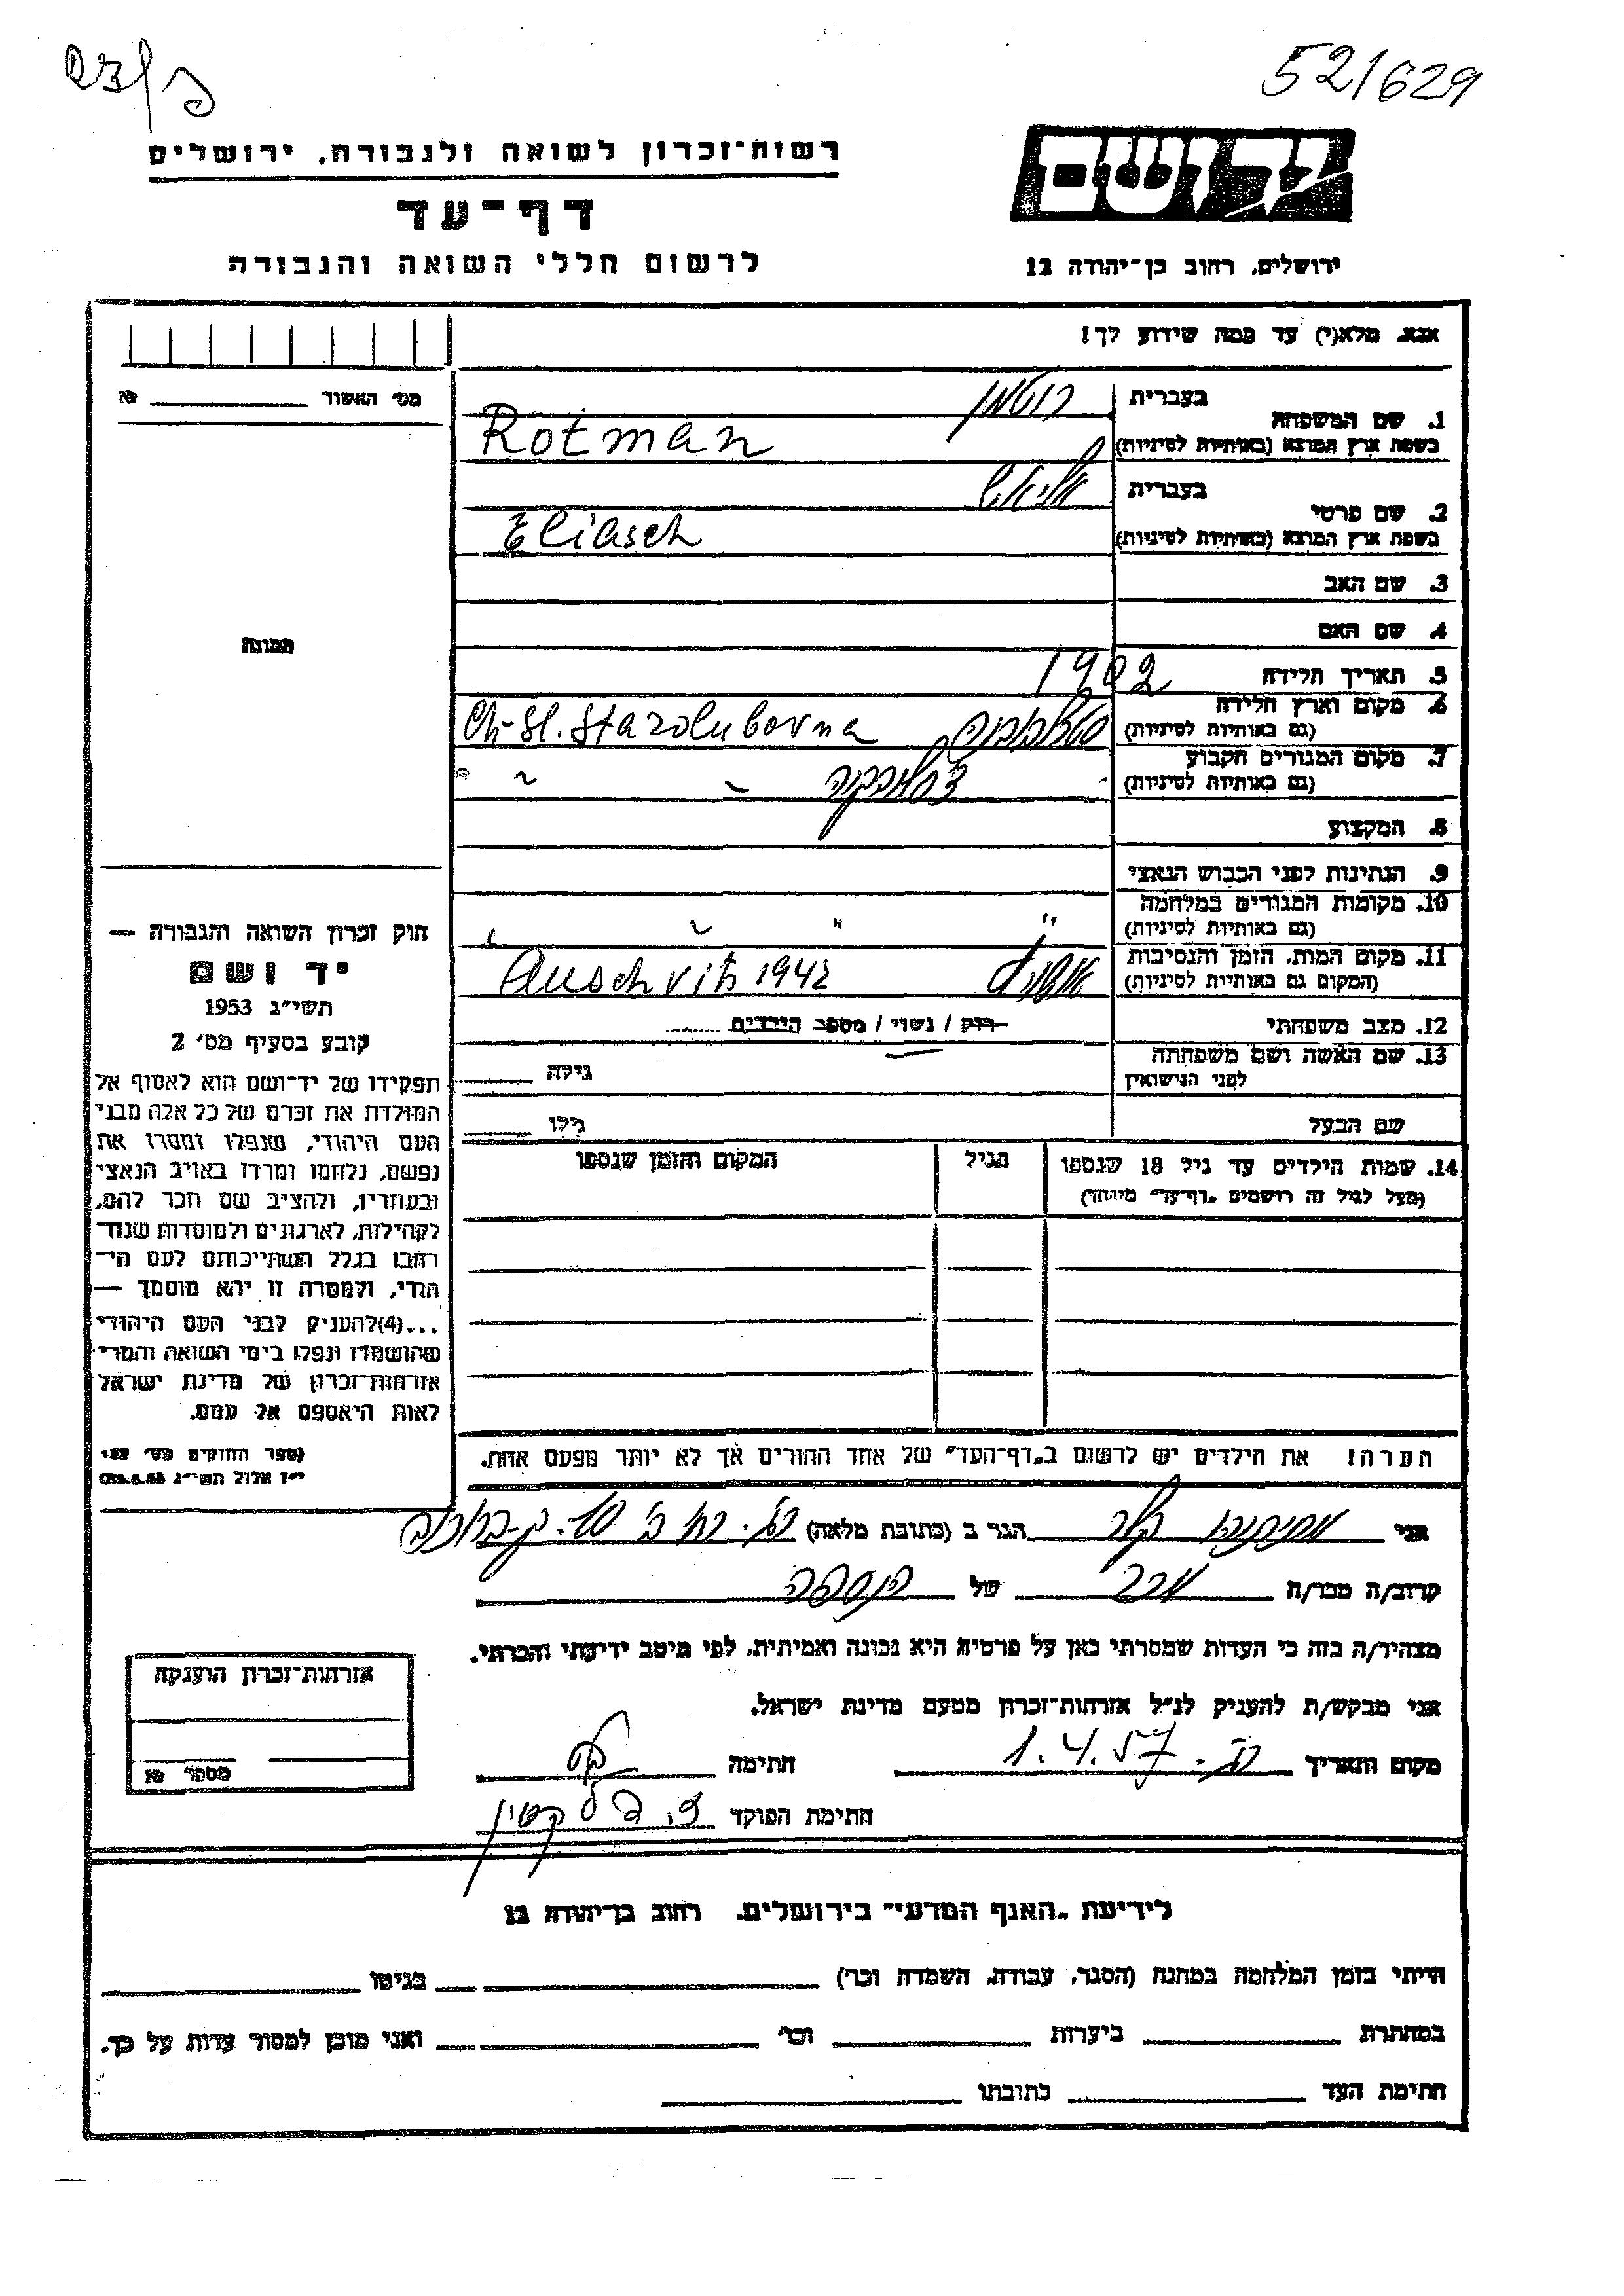 52/629
רשות־זכרון לשואה ולגבורה, ירושלים
יד ושם
דף־עד
לרשום חללי השואה והגבורה
ירושלים, רחוב בן־יהודה 12
אנא, מלא(י) עד כמה שידוע לך!
מס׳ האשור №
1. שם המשפחה
בעברית רוטמן
בשפת ארץ המוצא (באותיות לטיניות) Rotman
2. שם פרטי
בעברית אליאש
בשפת ארץ המוצא (באותיות לטיניות) Eliasch
3. שם האב
4. שם האם
תמונה
5. תאריך הלידה 1902
6. מקום וארץ הלידה
(גם באותיות לטיניות) Ch-Sl. Starolubovna
7. מקום המגורים הקבוע
(גם באותיות לטיניות) " " "
8. המקצוע
9. הנתינות לפני הכבוש הנאצי
10. מקומות המגורים במלחמה
(גם באותיות לטיניות) " " " "
11. מקום המות, הזמן והנסיבות
(המקום גם באותיות לטיניות) Auschvitz 1942
12. מצב משפחתי רוק / נשוי / מספר הילדים
13. שם האשה ושם משפחתה
לפני הנישואין גילה
שם הבעל גילו
14. שמות הילדים עד גיל 18 שנספו
(מעל לגיל זה רושמים „דף־עד״ מיוחד)
הגיל
המקום והזמן שנספו
חוק זכרון השואה והגבורה —
יד ושם
תשי״ג 1953
קובע בסעיף מס׳ 2
תפקידו של יד־ושם הוא לאסוף אל
המולדת את זכרם של כל אלה מבני
העם היהודי, שנפלו ומסרו את
נפשם, נלחמו ומרדו באויב הנאצי
ובעוזריו, ולהציב שם וזכר להם,
לקהילות, לארגונים ולמוסדות שנח־
רבו בגלל השתייכותם לעם הי־
הודי, ולמטרה זו יהא מוסמך —
...(4)להעניק לבני העם היהודי
שהושמדו ונפלו בימי השואה והמרי
אזרחות־זכרון של מדינת ישראל
לאות היאספם אל עמם.
(ספר החוקים מס׳ 132
י״ז אלול תשי״ג 28.8.53)
הערה! את הילדים יש לרשום ב„דף־העד״ של אחד ההורים אך לא יותר מפעם אחת.
אני הגר ב (כתובת מלאה)
קרוב/ה מכר/ה של הנספה
מצהיר/ה בזה כי העדות שמסרתי כאן על פרטיה היא נכונה ואמיתית, לפי מיטב ידיעתי והכרתי.
אני מבקש/ת להעניק לנ״ל אזרחות־זכרון מטעם מדינת ישראל.
מקום ותאריך 1.4.57 חתימה
חתימת הפוקד
אזרחות־זכרון הוענקה
מספר №
לידיעת „האגף המדעי״ בירושלים, רחוב בן־יהודה 12
הייתי בזמן המלחמה במחנה (הסגר, עבודה, השמדה וכו׳) בגיטו
במחתרת ביערות וכו׳ ואני מוכן למסור עדות על כך.
חתימת העד כתובתו